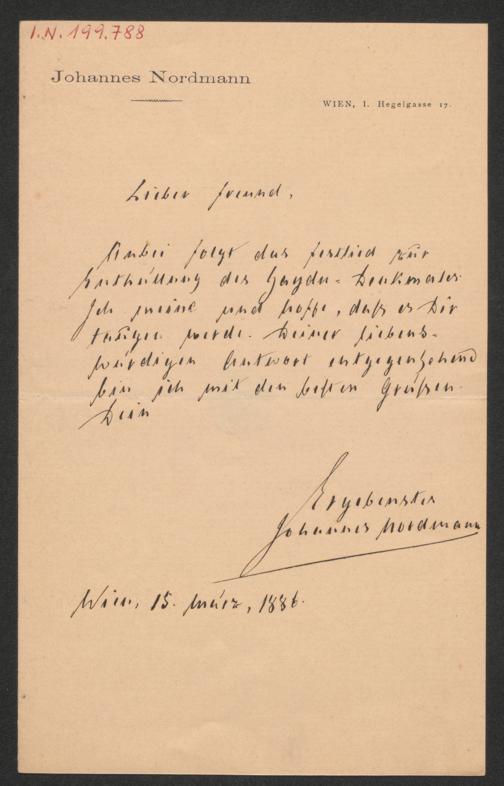 I.N. 199.788
Johannes Nordmann
WIEN, I. Hegelgasse 17.
Lieber Freund,
Anbei folgt das Festlied zur
Enthüllung des Haydn-Denkmales.
Ich meine und hoffe, daß es Dir
taugen werde. Deiner liebens-
würdigen Antwort entgegensehend
bin ich mit den besten Grüßen
Dein
Ergebenster
Johannes Nordmann
Wien, 15. März, 1886.